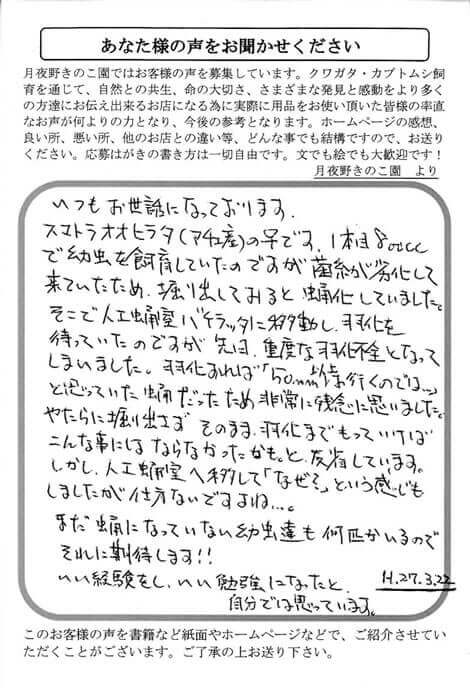 あなた様の声をお聞かせください
月夜野きのこ園ではお客様の声を募集しています。クワガタ・カブトムシ飼
育を通じて、自然との共生、命の大切さ、さまざまな発見と感動をより多く
の方達にお伝え出来るお店になる為に実際に用品をお使い頂いた皆様の率直
なお声が何よりの力となり、今後の参考となります。ホームページの感想、
良い所、悪い所、他のお店との違い等、どんな事でも結構ですので、お送り
ください。応募はがきの書き方は一切自由です。文でも絵でも大歓迎です！
月夜野きのこ園 より
いつもお世話になっております。
スマトラオオヒラタ(アチェ産)の♀です。1本目800cc
で幼虫を飼育していたのですが菌糸が劣化して
来ていたため、掘り出してみると蛹化していました。
そこで人工蛹室 に移動し、羽化を
待っていたのですが先日、重度な羽化不全となって
しまいました。羽化すれば「50mm後 行くのでは…」
と思っていた蛹だったため非常に残念に思いました。
やたらに掘り出さず そのまま羽化までもっていけば
こんな事にはならなかったかも。と、反省しています。
しかし、人工蛹室へ移して「なぜ?」という感じも
しましたが仕方ないですよね…。
まだ蛹になっていない幼虫達も何匹かいるので
それに期待します!!
いい経験をし、いい勉強になったと、
自分では思っています。
H.27.3.22
このお客様の声を書籍など紙面やホームページなどで、ご紹介させてい
ただくことがございます。ご了承の上お送り下さい。